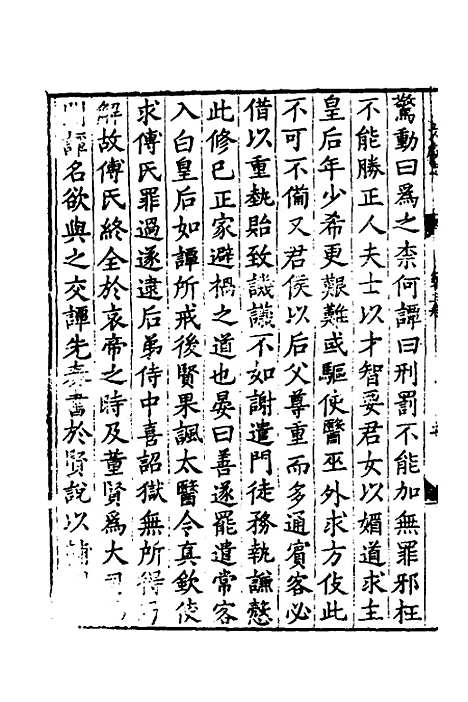 驚動曰爲之柰何譚曰刑罰不能加無罪邪枉
不能勝正人夫士以才智要君女以媚道求主
皇后年少希更艱難或驅使醫巫外求方伎此
不可不備又君侯以后父尊重而多通賓客必
借以重埶貽致譏議不如謝遣門徒務執謙慤
此修已正家避禍之道也晏曰善遂罷遣常客
入白皇后如譚所戒後賢果諷太醫令真欽使
求傅氏罪過遂逮后弟侍中喜詔獄無所得乃
解故傅氏終全於哀帝之時及董賢爲大司
譚名欲與之交譚先奏書於賢說以輔